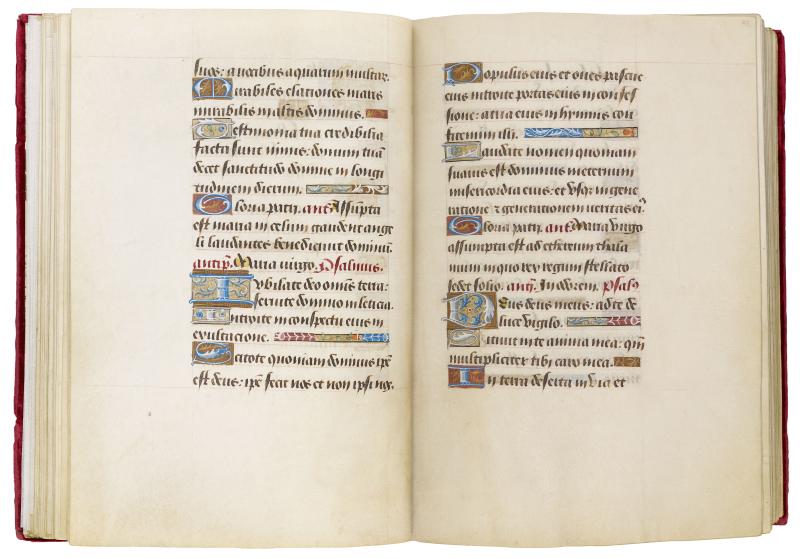 suos: a vocibus aquarum multar.
Mirabiles elationes maris
mirabilis in altis dominus.
Testimonia tua credibilia
facta sunt nimis: domum tuā
decet sanctitudo domine in longi
tudinem dierum.
Gloria patri. ant. Assumpta
est maria in celum gaudent ange
li laudantes benedicunt dominū.
antip̄. Maria virgo. Psalmus.
Iubilate deo omīs terra:
servite domino in leticia.
Introite in conspectu eius in
exultacione.
Scitote quoniam dominus ip̄e
est deus: ip̄e fecit nos et non ipsi nos.
Populus eius et oves pascue
eius introite portas eius in confes
sione: atria eius in hymnis con
fitemini illi.
Laudate nomen eius quoniam
suavis est dominus in eternum
misericordia eius: et usq; in gene
ratione & generationem veritas ei⁹
Gloria patri. ant. Maria virgo
assumpta est ad ethereum thala
mum in quo rex regum stellato
sedet solio. anti. In odorem. psal⁹
Deus deus meus: ad te de
luce vigilo.
Sitivit in te anima mea: qm̄
multipliciter tibi caro mea.
In terra deserta in via et